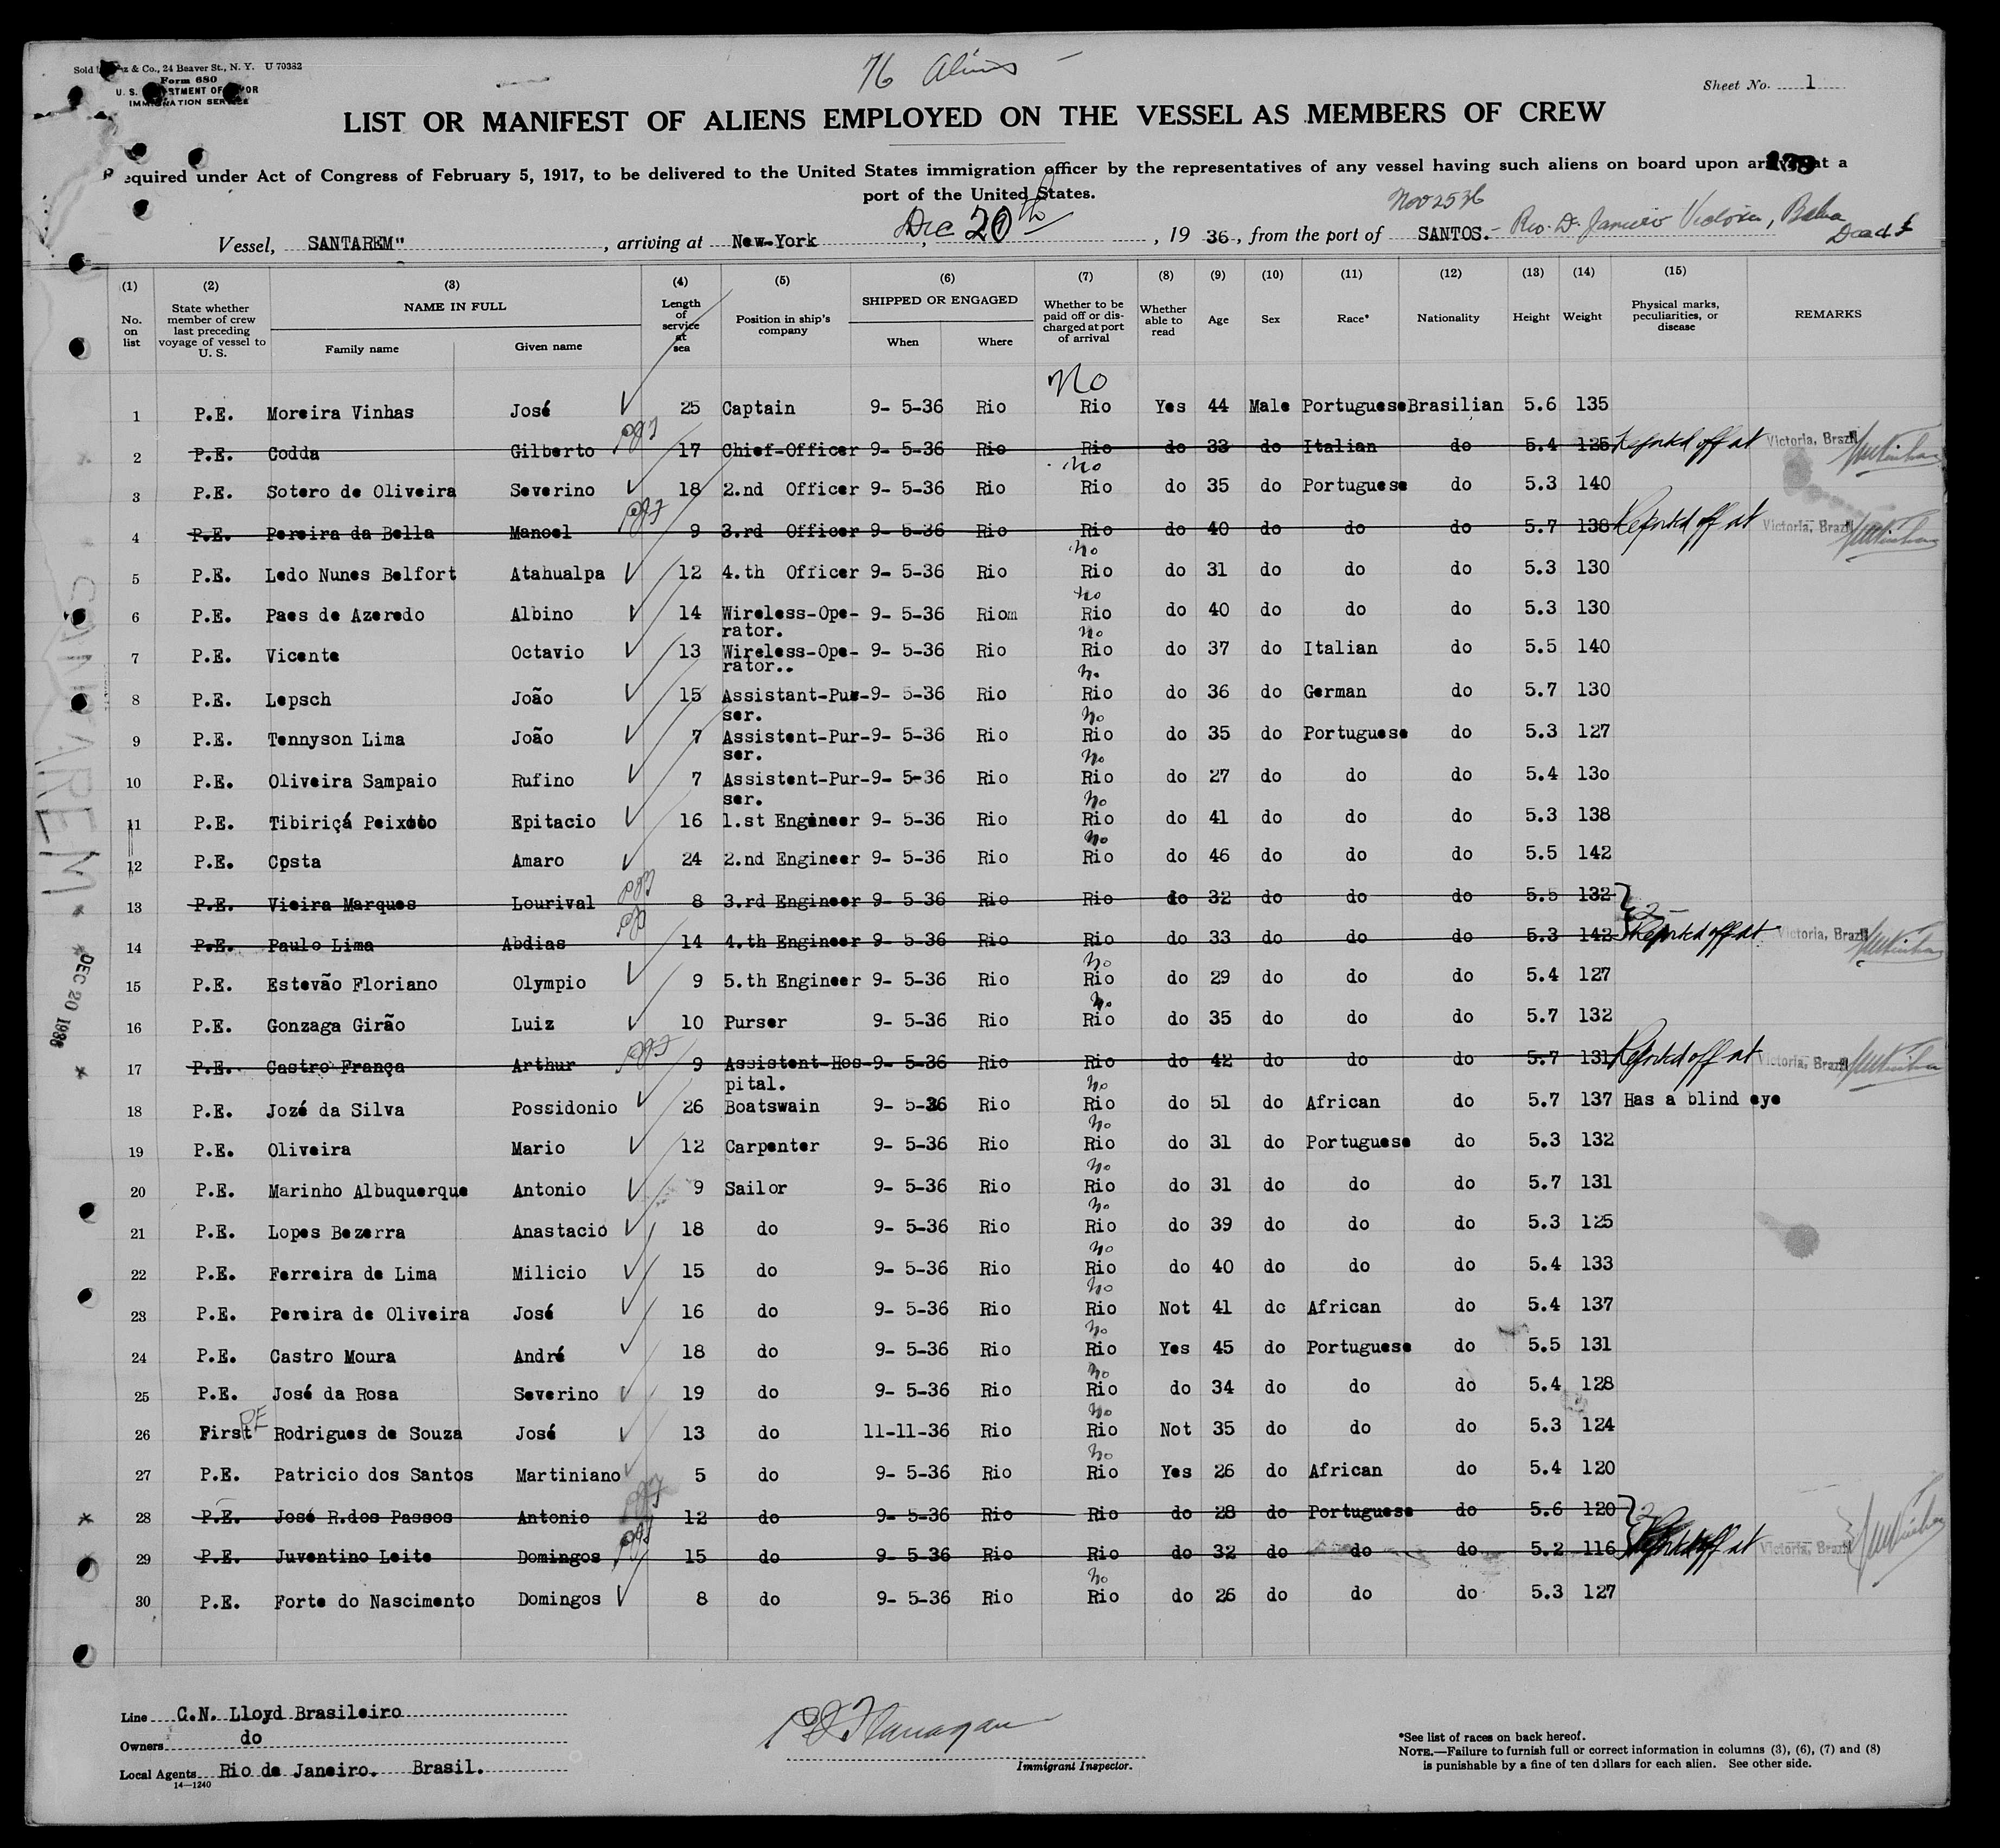 Sold & Co., 24 Beaver St., N. Y. U 70382
Form 680
U. S. OF
IMMIGRATION SERVICE
76 Aliens
Sheet No. 1
LIST OR MANIFEST OF ALIENS EMPLOYED ON THE VESSEL AS MEMBERS OF CREW
Required under Act of Congress of February 5, 1917, to be delivered to the United States immigration officer by the representatives of any vessel having such aliens on board upon arrival at a
port of the United States.
Nov 25 36
Vessel, SANTAREM", arriving at New-York, Dec 20th, 19 36, from the port of SANTOS.- Rio. D. Janeiro Victoria, Bahia
Dec 4
(1) (2) (3) (4) (5) (6) (7) (8) (9) (10) (11) (12) (13) (14) (15)
No. on list
State whether member of crew last preceding voyage of vessel to U. S.
NAME IN FULL
Family name
Given name
Length of service at sea
Position in ship's company
SHIPPED OR ENGAGED
When
Where
Whether to be paid off or discharged at port of arrival
Whether able to read
Age
Sex
Race*
Nationality
Height
Weight
Physical marks, peculiarities, or disease
REMARKS
No
1 P.E. Moreira Vinhas José 25 Captain 9- 5-36 Rio Rio Yes 44 Male Portuguese Brasilian 5.6 135
2 P.E. Codda Gilberto off 17 Chief-Officer 9- 5-36 Rio Rio do 33 do Italian do 5.4 125 Reported off at Victoria, Brazil
No
3 P.E. Sotero de Oliveira Severino 18 2.nd Officer 9- 5-36 Rio Rio do 35 do Portuguese do 5.3 140
4 P.E. Pereira da Bella Manoel off 9 3.rd Officer 9- 5-36 Rio Rio do 40 do do do 5.7 138 Reported off at Victoria, Brazil
No
5 P.E. Ledo Nunes Belfort Atahualpa 12 4.th Officer 9- 5-36 Rio Rio do 31 do do do 5.3 130
No
6 P.E. Paes de Azeredo Albino 14 Wireless-Ope- 9- 5-36 Riom Rio do 40 do do do 5.3 130
rator. No
7 P.E. Vicente Octavio 13 Wireless-Ope- 9- 5-36 Rio Rio do 37 do Italian do 5.5 140
rator.. No
8 P.E. Lepsch João 15 Assistant-Pur- 9- 5-36 Rio Rio do 36 do German do 5.7 130
ser. No
9 P.E. Tennyson Lima João 7 Assistent-Pur- 9- 5-36 Rio Rio do 35 do Portuguese do 5.3 127
ser. No
10 P.E. Oliveira Sampaio Rufino 7 Assistent-Pur- 9- 5-36 Rio Rio do 27 do do do 5.4 13o
ser. No
11 P.E. Tibiriçá Peixoto Epitacio 16 1.st Engineer 9- 5-36 Rio Rio do 41 do do do 5.3 138
No
12 P.E. Cpsta Amaro 24 2.nd Engineer 9- 5-36 Rio Rio do 46 do do do 5.5 142
13 P.E. Vieira Marques Lourival off 8 3.rd Engineer 9- 5-36 Rio Rio do 32 do do do 5.5 132
2
14 P.E. Paulo Lima Abdias off 14 4.th Engineer 9- 5-36 Rio Rio do 33 do do do 5.3 142 Reported off at Victoria, Brazil
No
15 P.E. Estevão Floriano Olympio 9 5.th Engineer 9- 5-36 Rio Rio do 29 do do do 5.4 127
No
16 P.E. Gonzaga Girão Luiz 10 Purser 9- 5-36 Rio Rio do 35 do do do 5.7 132
17 P.E. Castro França Arthur off 9 Assistent-Hos- 9- 5-36 Rio Rio do 42 do do do 5.7 131 Reported off at Victoria, Brazil
pital. No
18 P.E. Jozé da Silva Possidonio 26 Boatswain 9- 5-36 Rio Rio do 51 do African do 5.7 137 Has a blind eye
No
19 P.E. Oliveira Mario 12 Carpenter 9- 5-36 Rio Rio do 31 do Portuguese do 5.3 132
No
20 P.E. Marinho Albuquerque Antonio 9 Sailor 9- 5-36 Rio Rio do 31 do do do 5.7 131
No
21 P.E. Lopes Bezerra Anastacio 18 do 9- 5-36 Rio Rio do 39 do do do 5.3 125
No
22 P.E. Ferreira de Lima Milicio 15 do 9- 5-36 Rio Rio do 40 do do do 5.4 133
No
23 P.E. Pereira de Oliveira José 16 do 9- 5-36 Rio Rio Not 41 do African do 5.4 137
No
24 P.E. Castro Moura André 18 do 9- 5-36 Rio Rio Yes 45 do Portuguese do 5.5 131
No
25 P.E. José da Rosa Severino 19 do 9- 5-36 Rio Rio do 34 do do do 5.4 128
No
26 First PE Rodrigues de Souza José 13 do 11-11-36 Rio Rio Not 35 do do do 5.3 124
No
27 P.E. Patricio dos Santos Martiniano 5 do 9- 5-36 Rio Rio Yes 26 do African do 5.4 120
28 P.E. José R.dos Passos Antonio off 12 do 9- 5-36 Rio Rio do 28 do Portuguese do 5.6 120
2
29 P.E. Juventino Leite Domingos off 15 do 9- 5-36 Rio Rio do 32 do do do 5.2 116 Reported off at Victoria, Brazil
No
30 P.E. Forte do Nascimento Domingos 8 do 9- 5-36 Rio Rio do 26 do do do 5.3 127
SANTAREM
DEC 20 1936
Line C.N. Lloyd Brasileiro
Owners do
Local Agents Rio de Janeiro. Brasil.
14-1240
Flanagan
Immigrant Inspector.
*See list of races on back hereof.
NOTE.—Failure to furnish full or correct information in columns (3), (6), (7) and (8)
is punishable by a fine of ten dollars for each alien. See other side.